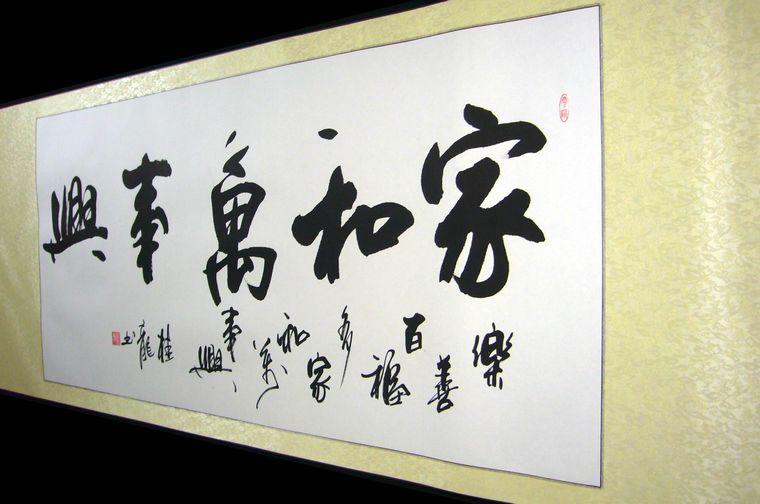 家和萬事興
樂善百福多
家和萬事興
桂龍书